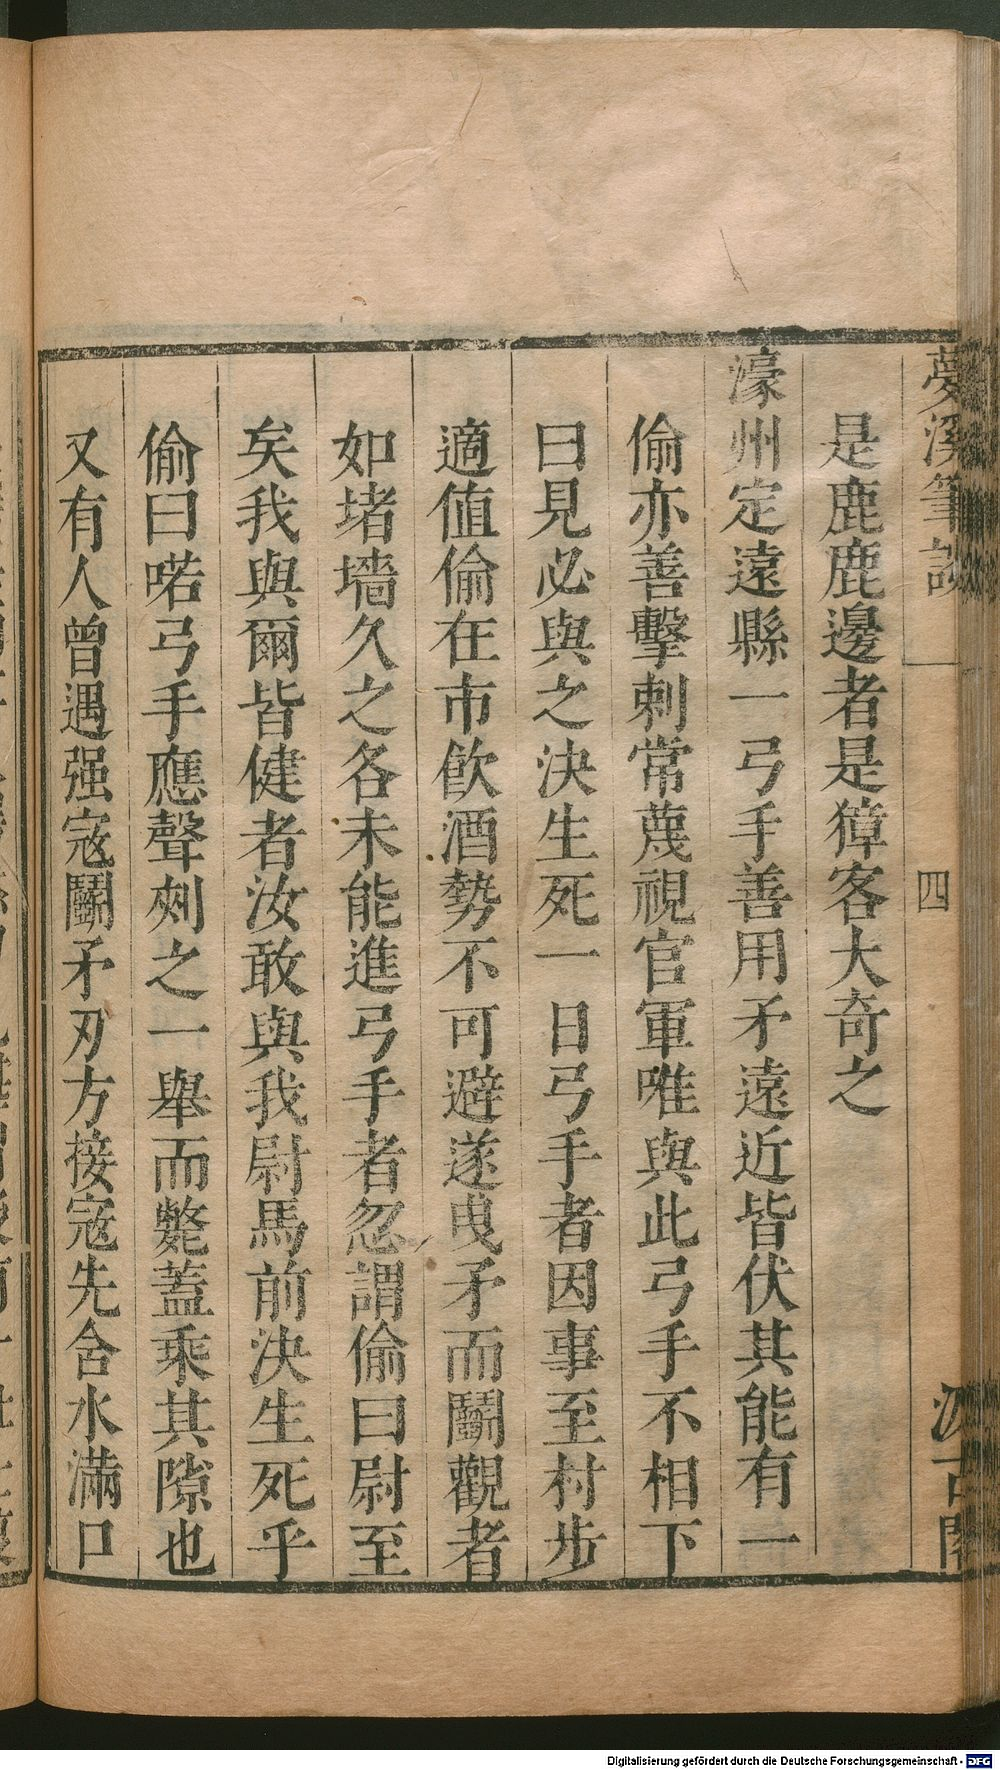 夢溪筆談
四
汲古閣
是鹿鹿邊者是獐客大奇之
濠州定遠縣一弓手善用矛遠近皆伏其能有一
偷亦善擊刺常蔑視官軍唯與此弓手不相下
曰見必與之決生死一日弓手者因事至村步
適值偷在市飲酒勢不可避遂曳矛而鬬觀者
如堵墻久之各未能進弓手者忽謂偷曰尉至
矣我與爾皆健者汝敢與我尉馬前決生死乎
偷曰喏弓手應聲刾之一舉而斃蓋乘其隙也
又有人曾遇强寇鬬矛刃方接寇先含水滿口
Digitalisierung gefördert durch die Deutsche Forschungsgemeinschaft - DFG